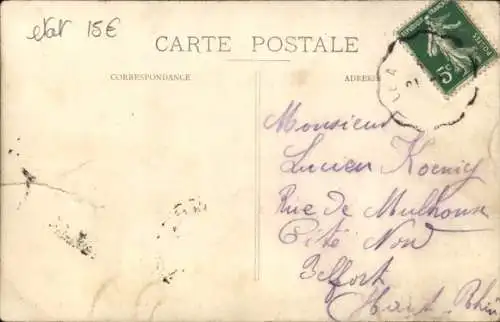 etat 15€
CARTE POSTALE
CORRESPONDANCE
ADRESSE
Monsieur
Lucien Koenig
Rue de Mulhouse
Cité Nord
Belfort
Haut-Rhin
5c